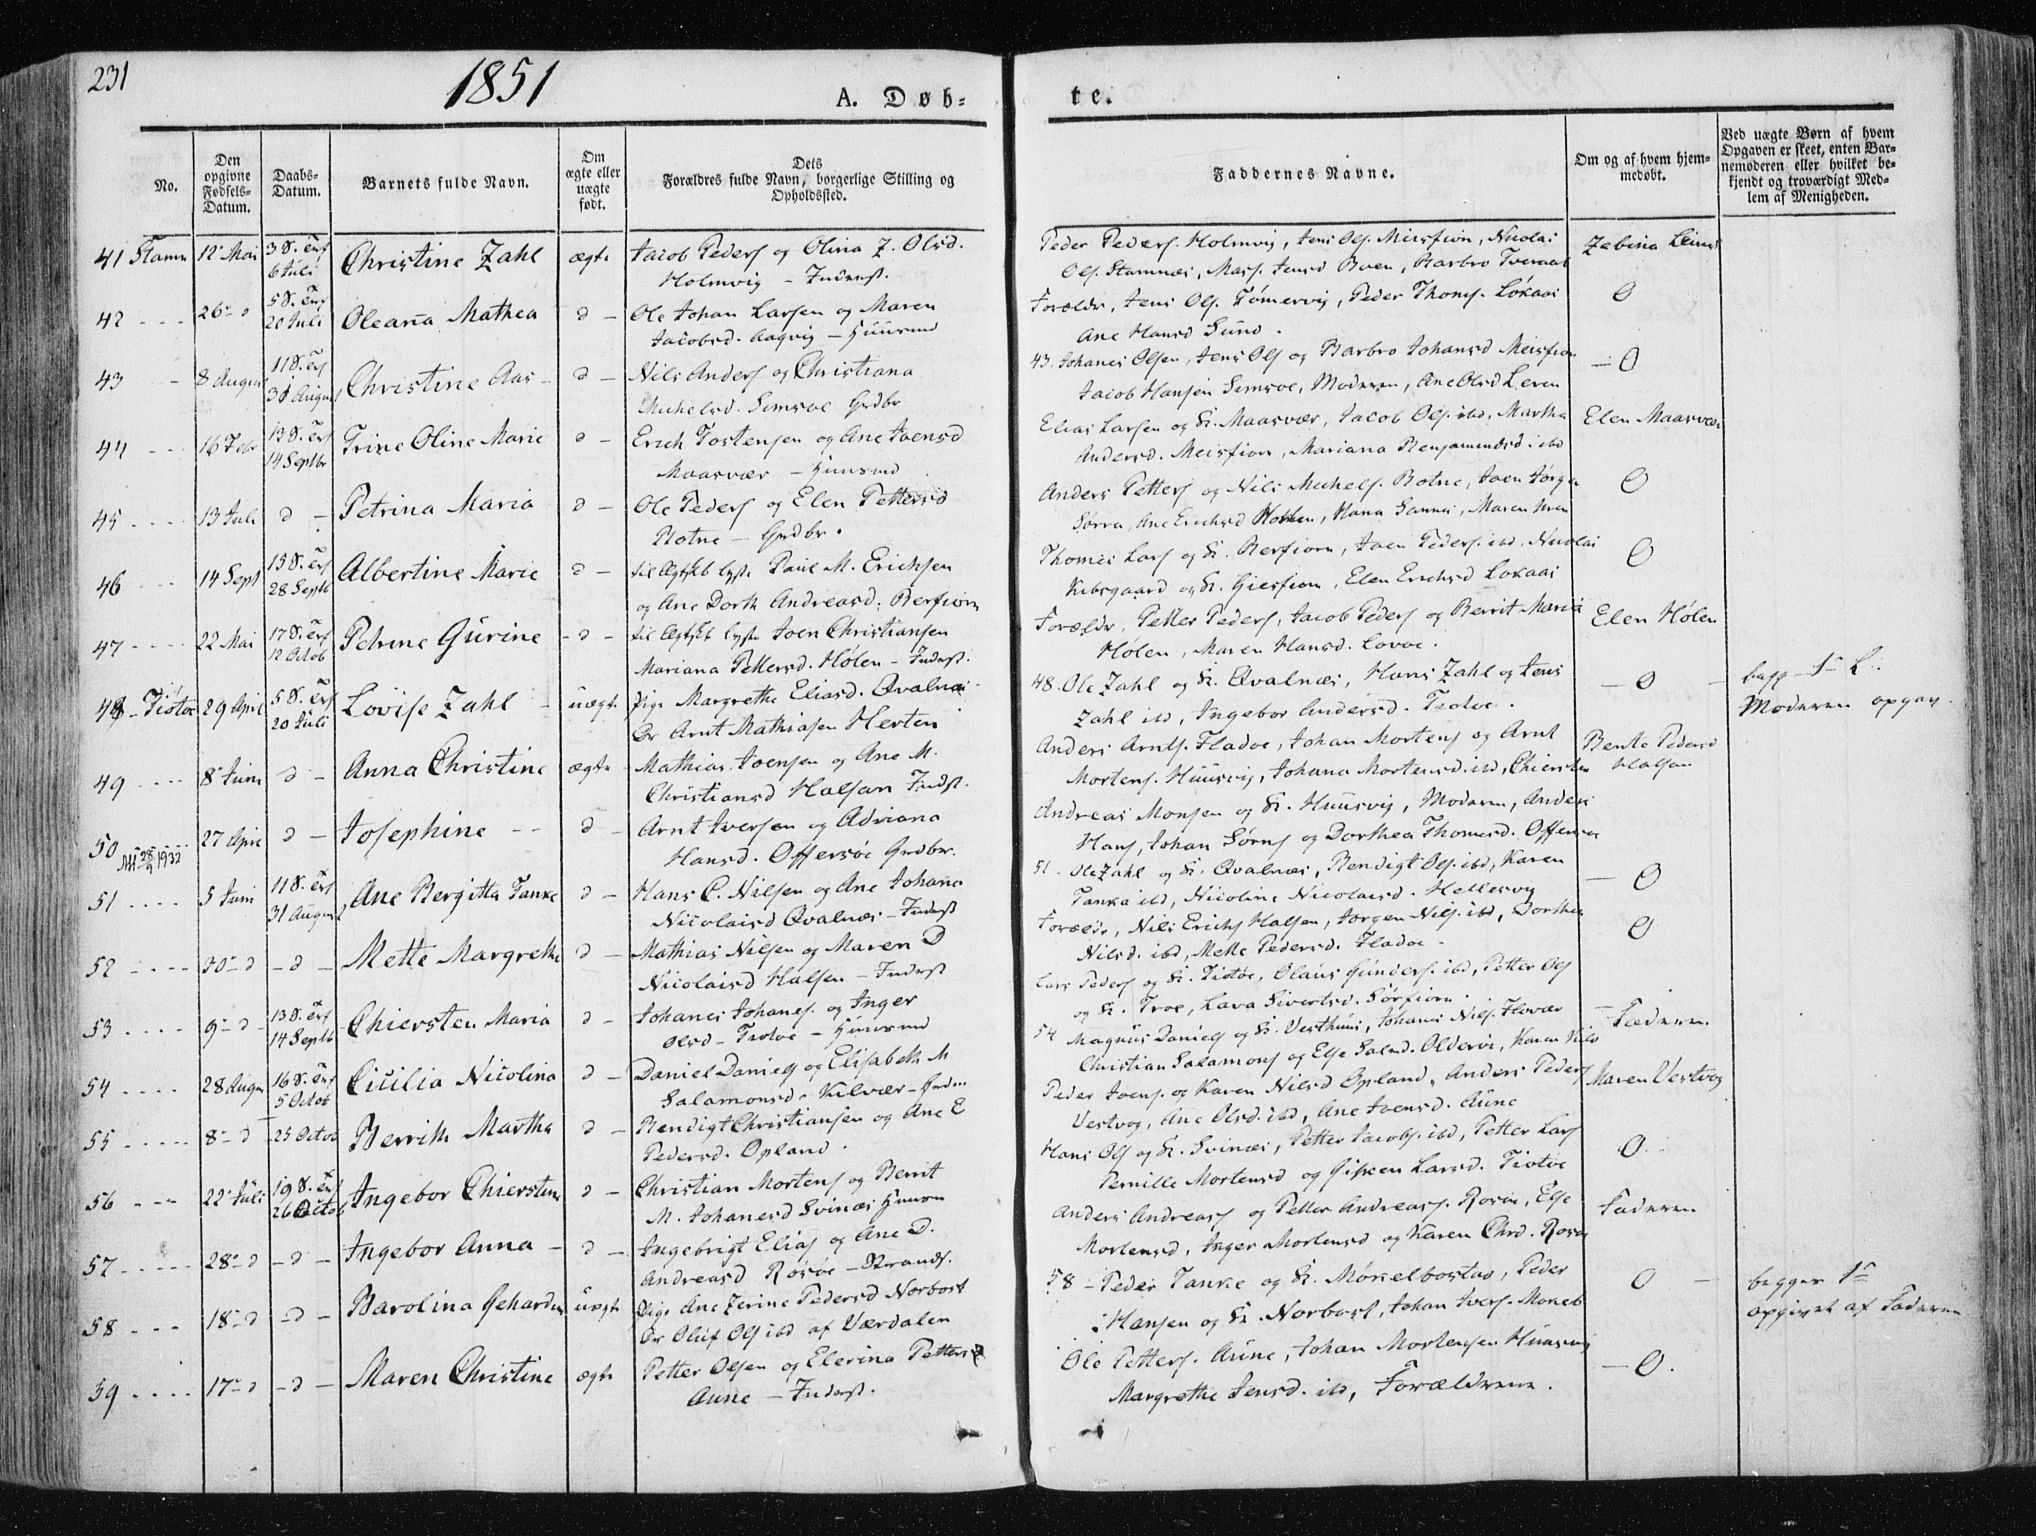 231
1851
A. Døb-
te.
No.
Den opgivne Fødsels-Datum.
Daabs-Datum.
Barnets fulde Navn.
Om ægte eller uægte født.
Dets Forældres fulde Navn, borgerlige Stilling og Opholdssted.
Faddernes Navne.
Om og af hvem hjem-medøbt.
Ved uægte Børn af hvem Opgaven er skeet, enten Bar-nemoderen eller hvilket be-kjendt og troværdigt Med-lem af Menigheden.
41 Stamn 12 Mai 3 S. Trf 6 Juli Christine Zahl ægte Jacob Peders og Olina Z. Olsd.
Holmvig - Inderst.
Peder Peders. Holmvig, Jens Ols. Meisfion, Nicolai
Ols. Stamnæs, Mass. Jensd Boen, Barbro Tveraae
Zebina
42 26 d 5 S. Trf 20 Juli Oleana Mathea d - Ole Johan Larsen og Maren
Jacobsd. Aagvig - Huusmd
Forældr, Jens Ols. Tømervig, Peder Thoms. Løkaas
Ane Hansd Sund.
O
43 8 August 11 S. Trf 31 August Christine Aas d - Nils Anders og Christiana
Michelsd. Semsøe Grdbr
43. Johanes Olsen, Jens Ols og Barbro Johansd Meisfion
Jacob Hansen Semsoe, Moderen, Ane Olsd Leren
O
44 16 Febr 13 S. Trf 14 Septbr Trine Oline Marie d - Erich Tostensen og Ane Joensd
Maasvær - Huusmd
Elias Larsen og K. Maasvær, Jacob Ols. ibd, Martha
Andersd. Meisfiorn, Mariana Benjamindsd. ibd
Elen Maasvær
45 13 Juli d - Petrina Maria d - Ole Peders og Elen Pettersd
Botne - Grdbr.
Anders Petters og Nils Michels. Botne, Joen Jørgn
Sørra, Ane Erichsd Holden, Hana Sannes, Maren
O
46 14 Sept 15 S. Trf 28 Septb Albertine Marie d - til Ægtskb lyste Paul M. Erichsen
og Ane Dorth Andreasd. Berfiorn
Thomes Lars og K. Berfiorn, Joen Peders. ibd, Nicolai
Kibsgaard og K. Giesfion, Elen Erichsd Lokaas
O
47 22 Mai 17 S. Trf 12 Octob Petrine Gurine - d - til Ægtskb lyste Joen Christiansen
Mariana Pettersd. Hølen - Inderst.
Forældr, Petter Peders, Jacob Peders og Berrit Maria
Hølen, Maren Hansd. Lovoe.
Elen Hølen
48 - Tiøtøe 29 April 5 S. Trf 20 Juli Lovise Zahl - uægte Pige Margrethe Eliasd. Qvalnæs
Dr Arnt Mathiasen Herten
48. Ole Zahl og K. Qvalnæs, Hans Zahl og Jens
Zahl ibd, Ingebor Andersd. Tiotoe.
- O -
begg 1 L.
Moderen opgav.
49 8 Juni d - Anna Christine ægte - Mathias Joensen og Ane M.
Christiansd Halsan Indst.
Anders Arnts. Fladoe, Johan Mortens og Arnt
Mortens. Huusvig, Johana Mortensd. ibd, Chiersten
Bente Pedersd
Halsan
50 27 April d - Josephine d - Arnt Iversen og Adriana
28/9 1932 Hansd. Offersøe Grdbr.
Andreas Monsen og K. Huusvig, Moderen, Anders
Hans, Johan Sørns og Dorthea Thomesd. Offersøe
51 5 Juni 11 S. Trf 31 August Ane Bergitta Tanke d - Hans C. Nilsen og Ane Johana
Nicolaisd Qvalnæs - Inderst
51 - Ole Zahl og K. Qvalnæs, Bendigt Ols. ibd, Karen
Tanka ibd, Nicoline Nicolaisd. Hellesvig
- O
52 30 d - d - Mette Margrethe d - Mathias Nilsen og Maren D
Nicolaisd Halsen - Inderst
Forældr, Nils Erichs Halsen, Jorgen Nils. ibd, Dorthea
Nilsd. ibd, Mette Pedersd. Fladoe -
O
53 9 - d - 13 S. Trf 14 Septb Chiersten Maria d - Johanes Johanes. og Inger
Olsd - Tiotoe - Huusmd
Lars Peders og K. Tiotøe, Olaus Gunders. ibd, Petter Ols
og K. Troe, Lava Sivertsd. Sørfiorn.
- Faderen.
54 28 August 16 S. Trf 5 Octob Cicilia Nicolina d - Daniel Daniels og Elisabeth M
Salamonsd. Kilvær - Ind
54 Magnus Daniels og K. Vesthuus, Johanes Nils. Flovær
Christian Salamons og Else Salmd. Olderøe, Karen Nils
55 8 - d 25 Octob Berrith Martha d - Bendigt Christiansen og Ane E
Pedersd. Opland.
Peder Joens. og Karen Nilsd Opland, Anders Peders
Vestvog, Ane Olsd. ibd, Ane Joensd. Aune
Maren Vestvog
56 22 Juli 19 S. Trf 26 Octob Ingebor Chierstine d - Christian Mortens og Berrit
M. Johanesd Svinæs Huusm
Hans Ols og K. Svinæs, Petter Jacobs. ibd, Petter Lars
Pernille Mortensd og Gisken Larsd. Tiotoe
O.
57 28 - d - d - Ingebor Anna - d - Ingebrigt Elias og Ane D.
Andreasd Rosøe - Strands.
Anders Andreass og Petter Andreass. Rosøe, Else
Mortensd, Inger Mortensd og Karen Chrd. Rosøe
Faderen
58 18 - d - d - Barolina Gehardine uægte Pige Ane Zerine Pedersd Norbost
Dr Oluf Ols ibd af Værdalen
58 - Peder Tanke og K. Møkelbostad, Peder
Hansen og K. Norbost, Johan Ivers.
O -
begges 1
opgivet af Faderen
59 17 - d - d - Maren Christine ægte Petter Olsen og Elerina Petters
Aune - Inderst.
Ole Petters. Aune, Johan Mortensen Huusvig
Margrethe Jensd. ibd, Forældrene.
- O.